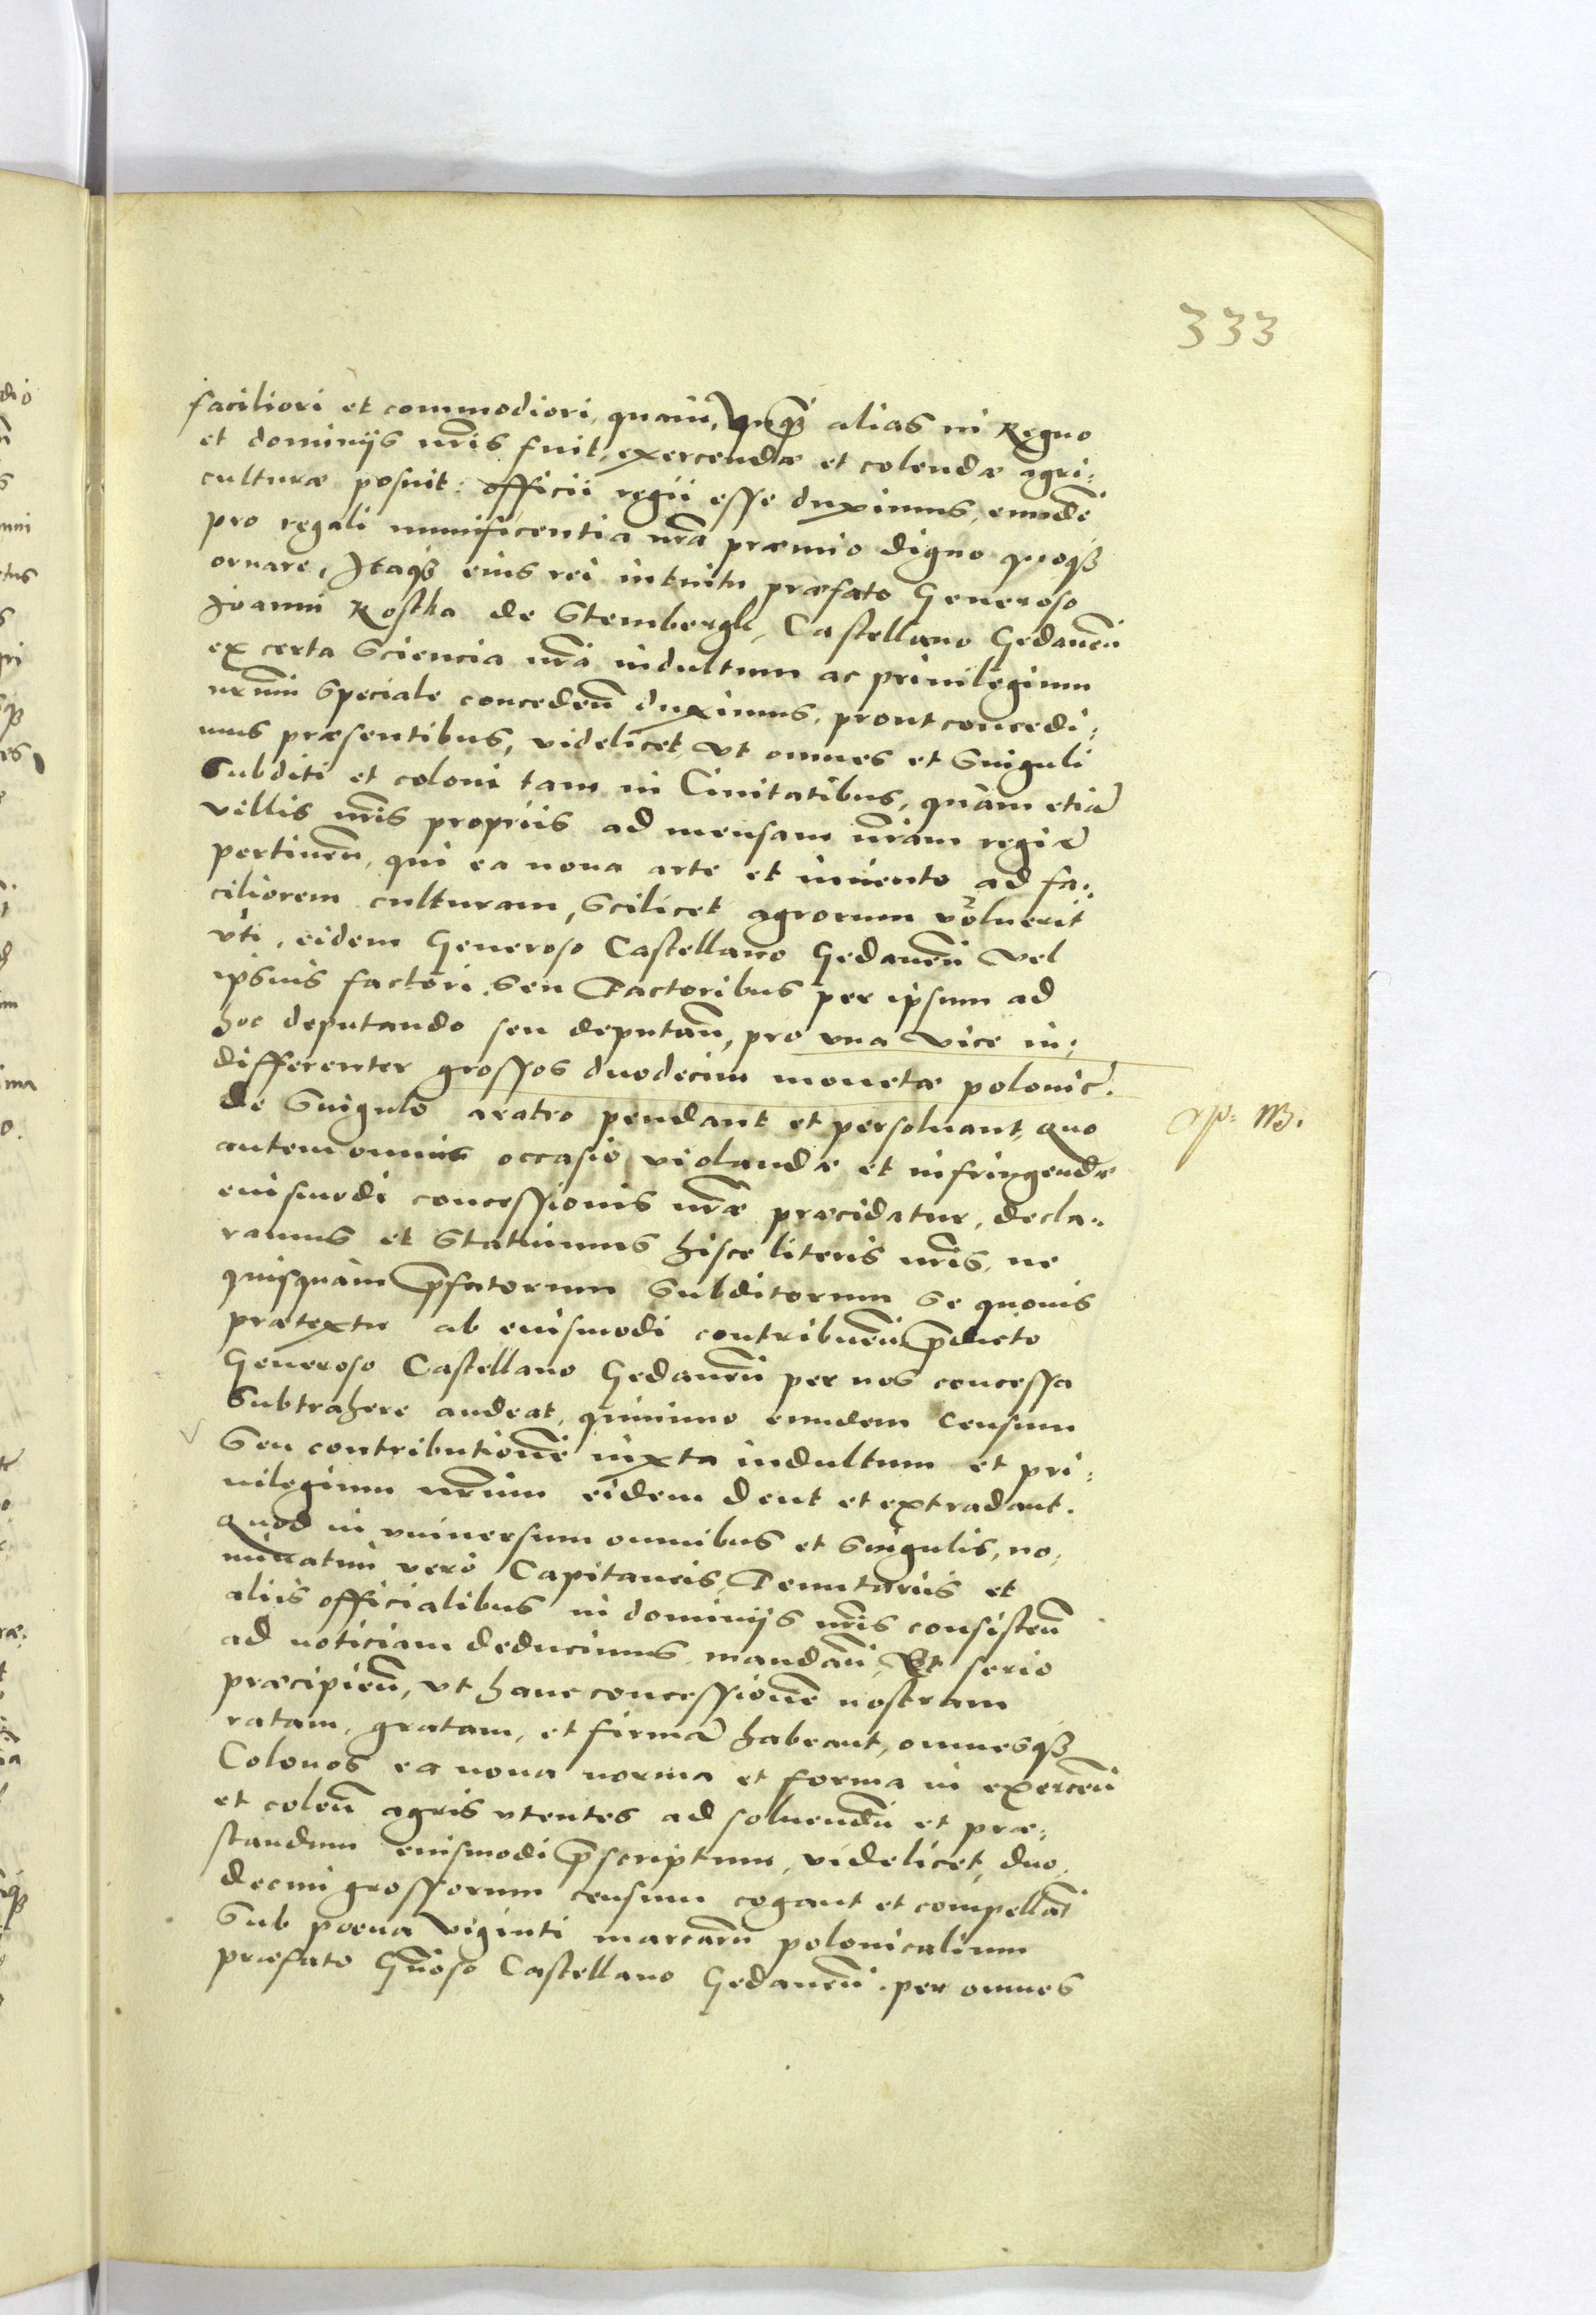 333
faciliori et commodiori, quam vnq͂ȝ alias in Regno
et dominijs nr̃is fuit, exercendæ et colendæ agri:
culturæ posuit: officii regii esse duximus, eundẽ
pro regali munificentia nr̃a præmio digno quoqȝ
ornare, Itaqȝ eius rei intuitu præfato Generoso
Joanni Kostka de Stembergk, Castellano Gedaneñ
ex certa Sciencia nr̃a indultum ac priuilegium
nr̃um speciale concedeñ duximus, prout concedi:
mus præsentibus, videlicet, vt omnes et Singuli
Subditi et coloni tam in Ciuitatibus, quàm etiã
villis nr̃is propriis ad mensam nr̃am regiã
pertineñ, qui ea noua arte et inuento ad fa:
ciliorem culturam, Scilicet agrorum voluerit
vti, eidem Generoso Castellano Gedaneñ vel
ipsius factori, Seu Factoribus per ipsum ad
hoc deputando seu deputañ, pro vna vice in:
differenter grossos duodecim monetæ polonic̃.
de Singulo aratro pendant et persoluant, quo
autem omnis occasio violandæ et infringendæ
eiusmodi concessionis nr̃æ præcidatur, decla:
ramus et Statuimus hisce literis nr̃is, ne
quisquam p̃fatorum Subditorum se quouis
prætextu ab eiusmodi contribueñ p̃dicto
Generoso Castellano Gedaneñ per nos concessa
Subtrahere audeat, quinimo eundem Censum
Seu contributionẽ iuxta indultum et pri:
uilegium nr̃um eidem dent et extradant.
Quod in vniuersum omnibus et Singulis, no:
minatim verò Capitaneis, Tenutariis et
aliis officialibus in dominijs nr̃is consisteñ
ad noticiam deducimus mandañ, Et serio
præcipieñ, vt hanc concessionẽ nostram
ratam, gratam, et firmã habeant, omnesqȝ
Colonos ea noua norma et forma in exerceñ
et coleñ agris vtentes ad soluendũ et præ:
standum eiusmodi p̃scriptum, videlicet, duo:
decim grossorum censum cogant et compellãt
Sub poena viginti marcarũ polonicalium
præfato Gñoso Castellano Gedaneñ per omnes